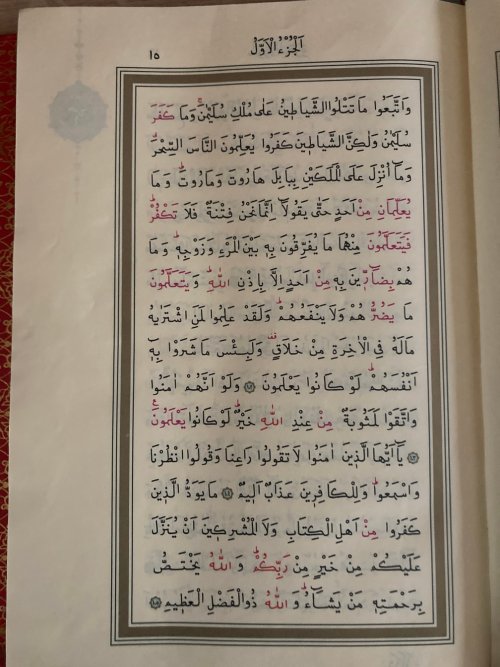 اَلْجُزْءُ الْاَوَّلُ
١٥
وَاتَّبَعُوا مَا تَتْلُوا الشَّيَاطٖينُ عَلٰى مُلْكِ سُلَيْمٰنَۚ وَمَا كَفَرَ
سُلَيْمٰنُ وَلٰكِنَّ الشَّيَاطٖينَ كَفَرُوا يُعَلِّمُونَ النَّاسَ السِّحْرَۗ
وَمَٓا اُنْزِلَ عَلَى الْمَلَكَيْنِ بِبَابِلَ هَارُوتَ وَمَارُوتَۜ وَمَا
يُعَلِّمَانِ مِنْ اَحَدٍ حَتّٰى يَقُولَٓا اِنَّمَا نَحْنُ فِتْنَةٌ فَلَا تَكْفُرْۜ
فَيَتَعَلَّمُونَ مِنْهُمَا مَا يُفَرِّقُونَ بِهٖ بَيْنَ الْمَرْءِ وَزَوْجِهٖۜ وَمَا
هُمْ بِضَٓارّٖينَ بِهٖ مِنْ اَحَدٍ اِلَّا بِاِذْنِ اللّٰهِۜ وَيَتَعَلَّمُونَ
مَا يَضُرُّهُمْ وَلَا يَنْفَعُهُمْۜ وَلَقَدْ عَلِمُوا لَمَنِ اشْتَرٰيهُ
مَا لَهُ فِي الْاٰخِرَةِ مِنْ خَلَاقٍۜ وَلَبِئْسَ مَا شَرَوْا بِهٖٓ
اَنْفُسَهُمْۜ لَوْ كَانُوا يَعْلَمُونَ ۝ وَلَوْ اَنَّهُمْ اٰمَنُوا
وَاتَّقَوْا لَمَثُوبَةٌ مِنْ عِنْدِ اللّٰهِ خَيْرٌۜ لَوْ كَانُوا يَعْلَمُونَ۟
۝ يَٓا اَيُّهَا الَّذٖينَ اٰمَنُوا لَا تَقُولُوا رَاعِنَا وَقُولُوا انْظُرْنَا
وَاسْمَعُواۜ وَلِلْكَافِرٖينَ عَذَابٌ اَلٖيمٌ ۝ مَا يَوَدُّ الَّذٖينَ
كَفَرُوا مِنْ اَهْلِ الْكِتَابِ وَلَا الْمُشْرِكٖينَ اَنْ يُنَزَّلَ
عَلَيْكُمْ مِنْ خَيْرٍ مِنْ رَبِّكُمْۜ وَاللّٰهُ يَخْتَصُّ
بِرَحْمَتِهٖ مَنْ يَشَٓاءُۜ وَاللّٰهُ ذُو الْفَضْلِ الْعَظٖيمِ ۝